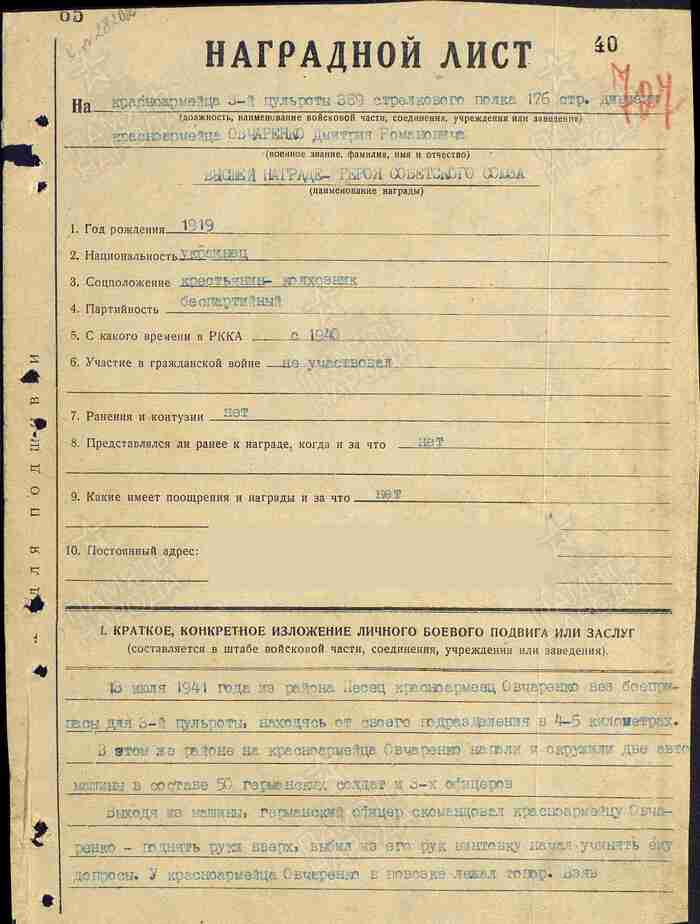 65
40
НАГРАДНОЙ ЛИСТ
707
На красноармейца 3-й пульроты 389 стрелкового полка 176 стр. дивизии
(должность, наименование войсковой части, соединения, учреждения или заведения)
красноармейца ОВЧАРЕНКО Дмитрия Романовича
(военное звание, фамилия, имя и отчество)
ВЫСШЕЙ НАГРАДЕ- ГЕРОЯ СОВЕТСКОГО СОЮЗА
(наименование награды)
1. Год рождения 1919
2. Национальность украинец
3. Соцположение крестьянин- колхозник
4. Партийность беспартийный
5. С какого времени в РККА с 1940
6. Участие в гражданской войне не участвовал
7. Ранения и контузии нет
8. Представлялся ли ранее к награде, когда и за что нет
9. Какие имеет поощрения и награды и за что нет
10. Постоянный адрес:
ДЛЯ ПОДШИВКИ
I. КРАТКОЕ, КОНКРЕТНОЕ ИЗЛОЖЕНИЕ ЛИЧНОГО БОЕВОГО ПОДВИГА ИЛИ ЗАСЛУГ
(составляется в штабе войсковой части, соединения, учреждения или заведения).
13 июля 1941 года из района Песец красноармеец Овчаренко вез боепри-
пасы для 3-й пульроты, находясь от своего подразделения в 4-5 километрах.
В этом же районе на красноармейца Овчаренко напали и окружили две авто
машины в составе 50 германских солдат и 3-х офицеров
Выходя из машины, германский офицер скомандовал красноармейцу Овча-
ренко - поднять руки вверх, выбил из его рук винтовку начал учинять ему
допросы. У красноармейца Овчаренко в повозке лежал топор. Взяв